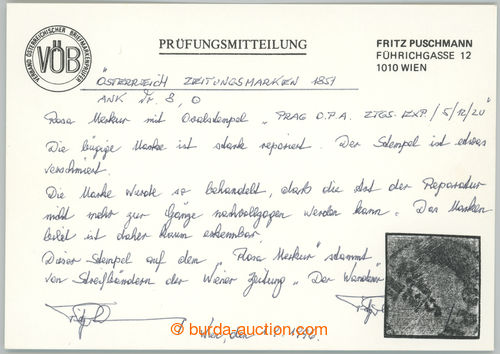 VERBAND ÖSTERREICHISCHER BRIEFMARKENPRÜFER
VÖB
PRÜFUNGSMITTEILUNG
FRITZ PUSCHMANN
FÜHRICHGASSE 12
1010 WIEN
"ÖSTERREICH ZEITUNGSMARKEN 1851
ANK Nr. 8, O
Rosa Merkur mit Ovalstempel "PRAG O.P.A. ZTGS. EXP./5/12/20"
Die bügige Marke ist stark repariert. Der Stempel ist etwas
verschmiert.
Die Marke wurde so behandelt, dass die Art der Reparatur
nicht mehr zur Gänze nachvollzogen werden kann. Das Marken
bild ist daher kaum erkennbar.
Dieser Stempel auf dem "Rosa Merkur" stammt
von Streifbändern der Wiener Zeitung "Der Wanderer"
Wien, den
© burda-auction.com